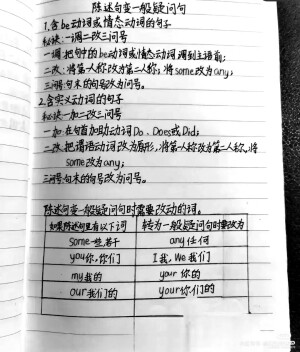 陈述句变一般疑问句
1.含be动词或情态动词的句子
秘诀:一调二改三问号
一调:把句中的be动词或情态动词调到主语前;
二改:将第一人称改为第二人称;将some改为any;
三问号:句末的句号改为问号。
2.含实义动词的句子
秘诀:一加二改三问号
一加:在句首加助动词Do、Does或Did;
二改:把谓语动词改为原形,将第一人称改为第二人称,将
some改为any;
三问号:句末的句号改为问号。
陈述句变一般疑问句时需要改动的词。
如果陈述句里有以下词 转为一般疑问句时要改为
some一些,若干 any任何
you你,你们 I我,We我们
my我的 your你的
our我们的 your你们的